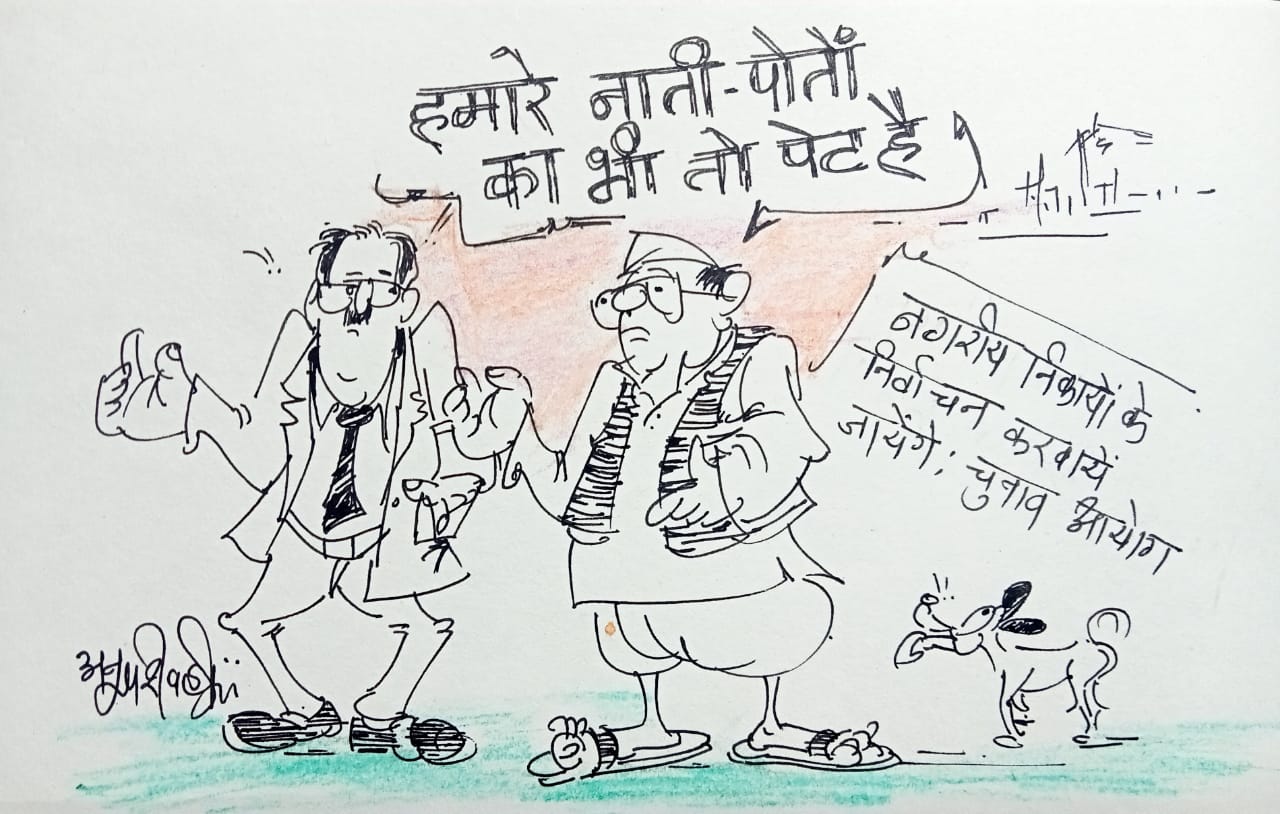 हमारे नाती-पोतों
का भी तो पेट है
नगरीय निकायों के
निर्वाचन करवायें
जायेंगे; चुनाव आयोग